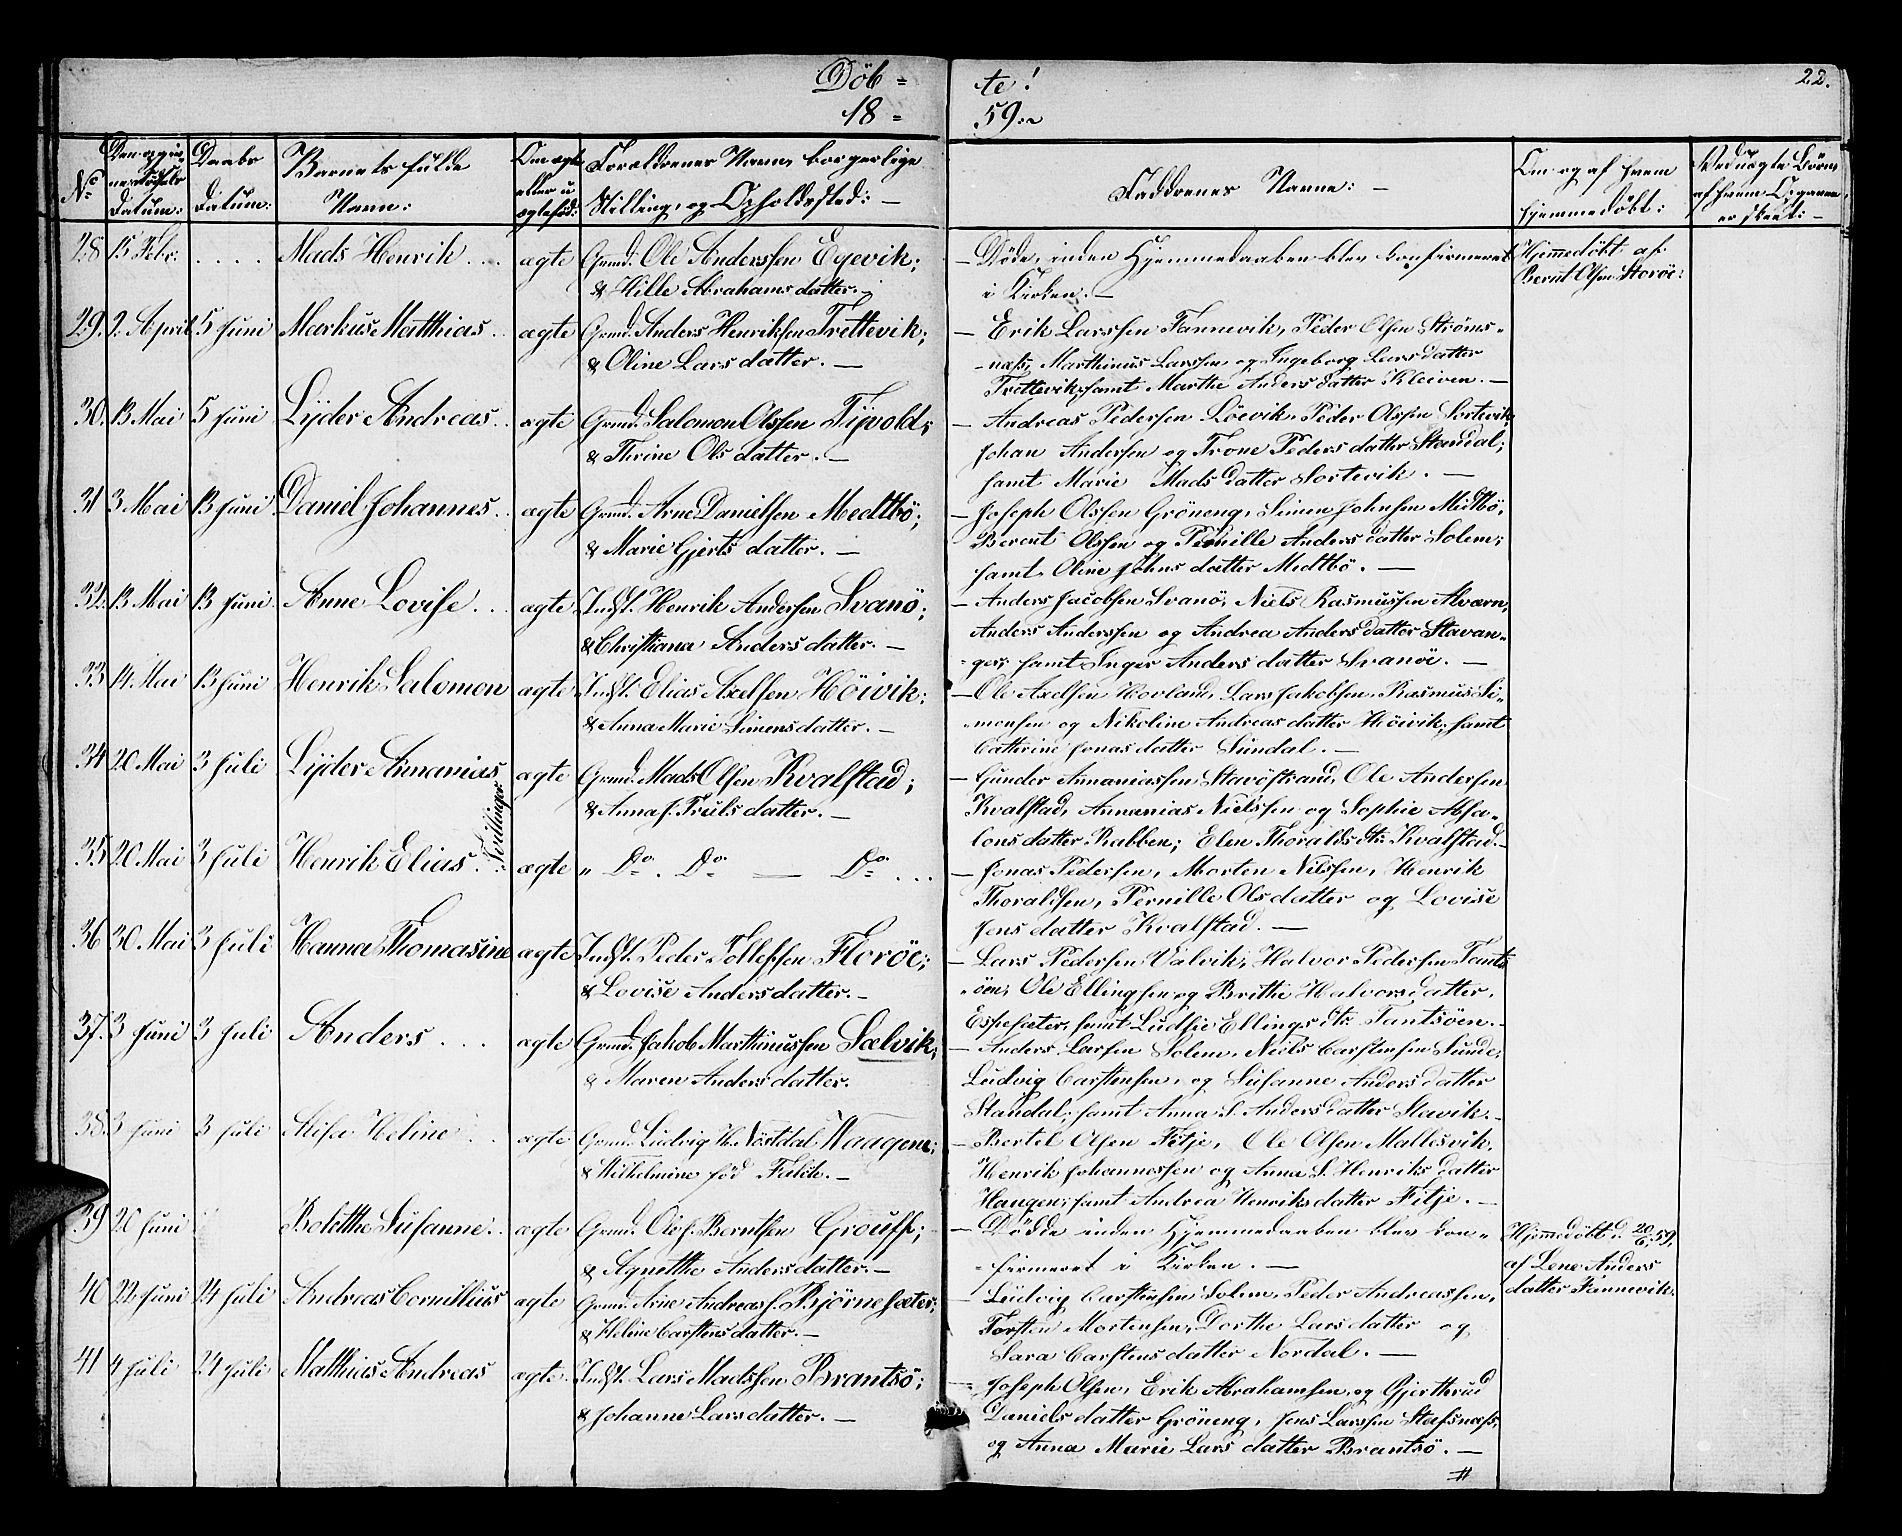 Döb-
18-
te!
59.
22.
No
Den opgivne Födsels Datum:
Daabs Datum:
Barnets fulde Navn:
Om ægte eller uægtefød:
Forældrenes Navn, borgerlige Stilling, og Opholdssted: —
Faddrenes Navne: —
Om og af hvem hjemmedöbt:
Ved uægte Börn, af hvem Angivn er skeet: —
28. 15 Febr. .... Mads Henrik ... ægte Grmd. Ole Anderssen Egevik;
& Hille Abrahamsdatter. —
— Döde, inden Hjemmedaaben blev konfirmeret
i Kirken. —
Hjemmedöbt af
Bernt Olsen Storöe:
29. 2 April 5 Juni Markus Matthias .. ægte Grmd. Anders Henriksen Trettevik;
& Oline Larsdatter. —
— Erik Larssen Fannevik, Peder Olsen Ströms-
næss, Marthinus Larssen og Ingeborg Larsdatter
Trettevik, samt Marthe Andersdatter Kleiven. —
30. 13 Mai 5 Juni Lyder Andreas .. ægte Grmd. Salomon Olssen Tyvold;
& Thrine Olsdatter. —
— Andreas Pedersen Löevik, Peder Olssen Sortevik,
Johan Andersen og Trone Pedersdatter Standal;
samt Marie Madsdatter Sortevik. —
31 3 Mai 13 Juni Daniel Johannes .. ægte Grmd. Arne Danielsen Medtbö;
& Marie Gjertsdatter. —
— Joseph Olssen Gröneng, Simen Johnsen Midtbö,
Berent Olssen og Pernille Andersdatter Solem;
samt Oline Johnsdatter Midtbö. —
32. 13 Mai 13 Juni Anne Lovise ... ægte Indst. Henrik Andersen Svanö;
& Christiana Andersdatter. —
— Anders Jacobsen Svanö, Niels Rasmussen Kværn,
Anders Anderssen og Andrea Andersdatter Stavan-
ger; samt Inger Andersdatter Svanöe. —
33 14 Mai 13 Juni Henrik Salomon ægte Indst. Elias Axelsen Höivik;
& Anna Marie Simensdatter. —
— Ole Axelsen Hovland, Lars Jakobsen, Rasmus Si-
monsen og Nikoline Andreasdatter Höivik, samt
Cathrine Jonasdatter Sundal. —
34 20 Mai 3 Juli Lyder Ananias ægte Grmd. Mads Olsen Kvalstad;
& Anna J. Trulsdatter. —
— Gunder Annaniassen Stavöstrand, Ole Andersen
Kvalstad, Annanias Nielssen og Sophie Absa-
lonsdatter Rabben; Elen Thoraldsdtr Kvalstad. —
Tvillinger
35 20 Mai 3 Juli Henrik Elias ... ægte " Do. Do — Do ...
— Jonas Pedersen, Morten Nilssen, Henrik
Thoraldsen, Pernille Olsdatter og Lovise
Jensdatter Kvalstad. —
36 30 Mai 3 Juli Hanna Thomasine ægte Indst. Peder Tollefsen Floröe;
& Lovise Andersdatter. —
— Lars Pedersen Valvik, Halvor Pedersen Tants-
öen; Ole Ellingsen og Brithe Halvorsdatter,
Espesæter, samt Ludsie Ellingsdtr Tantsöen. —
37. 3 Juni 3 Juli Anders ... ægte Grmd. Jakob Marthinussen Sælvik;
& Maren Andersdatter.
— Anders Larsen Solem, Niels Carstensen Sunde,
Ludvig Carstensen, og Susanne Andersdatter
Standal; samt Anna S. Andersdatter Stavik. —
38. 3 Juni 3 Juli Alisa Heline .. ægte Grmd. Ludvig K. Nöstdal Waagene;
& Wilhelmine föd Falck. —
— Bertel Olsen Fitje, Ole Olsen Mallesvik,
Henrik Johannessen og Anna S. Henriksdatter
Haugen; samt Andrea Henriksdatter Fitje. —
39 20 Juni Bolette Susanne. . ægte Grmd. Ole J. Berntsen Grouff;
& Agnethe Andersdatter. —
— Dödde inden Hjemmedaaben blev kon-
firmeret i Kirken. —
Hjemmedöbt d. 20/6 59,
af Lene Anders
datter Fannevik.
40 22 Juni 24 Juli Andreas Cornillius ægte Grmd. Arne Andreas J. Björnesæter;
& Heline Carstensdatter. —
— Ludvig Carstensen Solem, Peder Andreassen,
Torsten Mortensen, Dorthe Larsdatter og
Sara Carstensdatter Nordal. —
41 4 Juli 24 Juli Matthias Andreas ægte. Indst. Lars Madssen Brantsö;
& Johanne Larsdatter. —
— Joseph Olsen, Erik Abrahamsen, og Gjerthrud
Danielsdatter Gröneng, Jens Larssen Stafsnæss,
og Anna Marie Larsdatter Brantsö. —